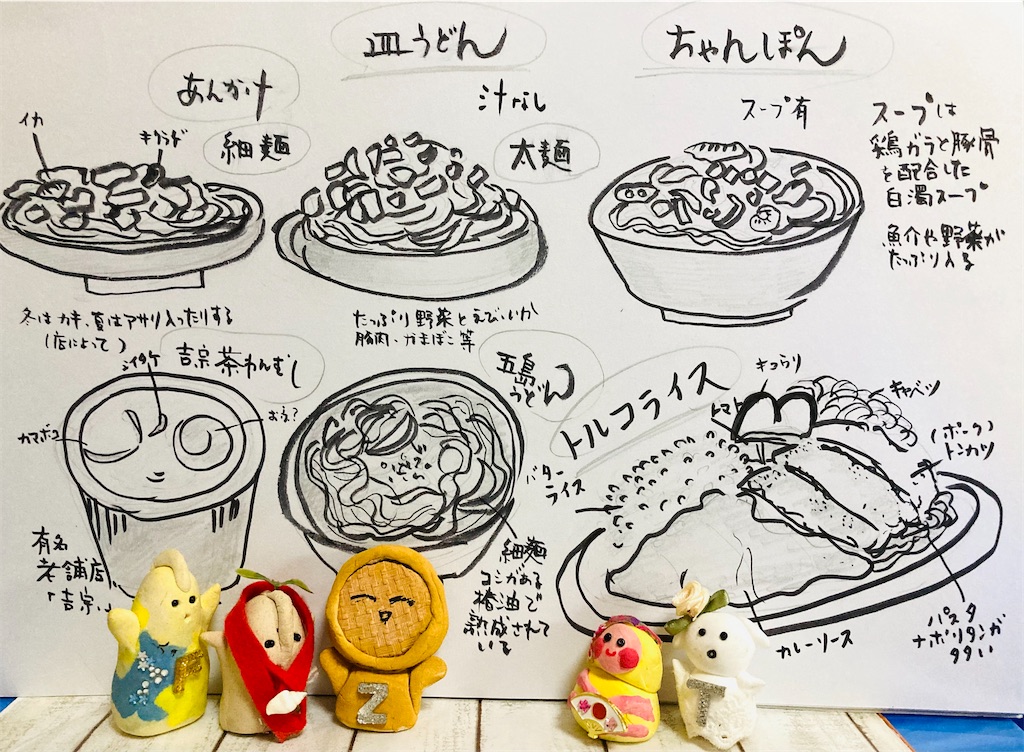 皿うどん
ちゃんぽん
あんかけ
汁なし
スープ有
イカ
キクラゲ
細麺
太麺
スープは
鶏ガラと豚骨
を配合した
白濁スープ
魚介や野菜が
たっぷり入る
冬はカキ、夏はアサリ入ったりする
(店によって)
たっぷり野菜とえび、いか
豚肉、かまぼこ等
吉宗茶わんむし
シイタケ
カマボコ
お麩?
有名
老舗店
「吉宗」
五島
うどん
細麺
コシがある
椿油で
熟成されて
いる
トルコライス
キュウリ
トマト
キャベツ
(ポーク)
トンカツ
バター
ライス
カレーソース
パスタ
ナポリタンが
多い
Z
T